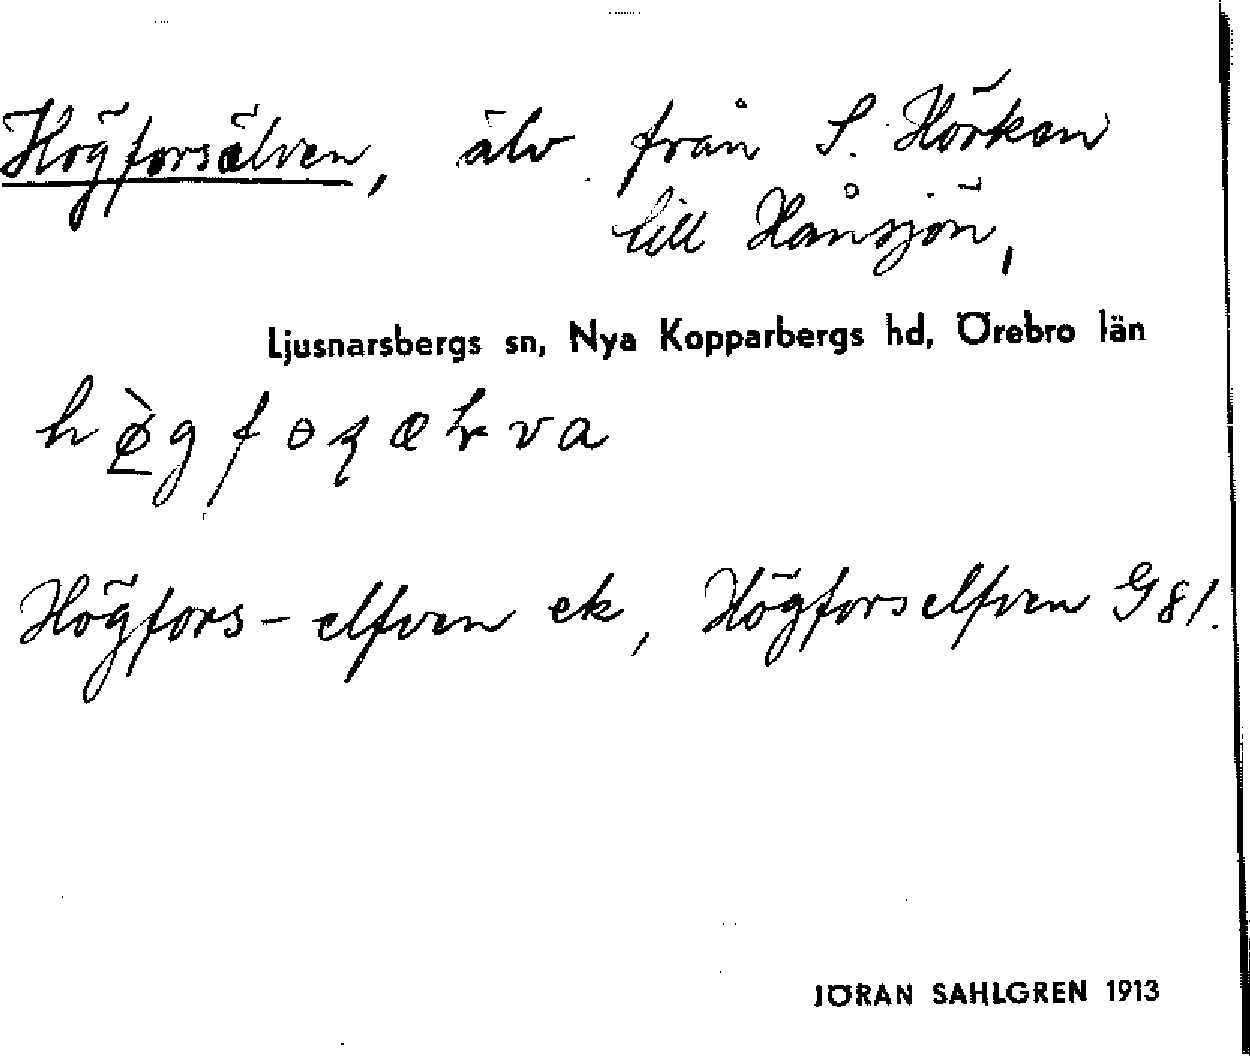 Högforsälven, älv från S. Hörken
till Hånsjön,
Ljusnarsbergs sn, Nya Kopparbergs hd, Örebro län
Högfors-elfven ek, Högforselfven G81.
JÖRAN SAHLGREN 1913